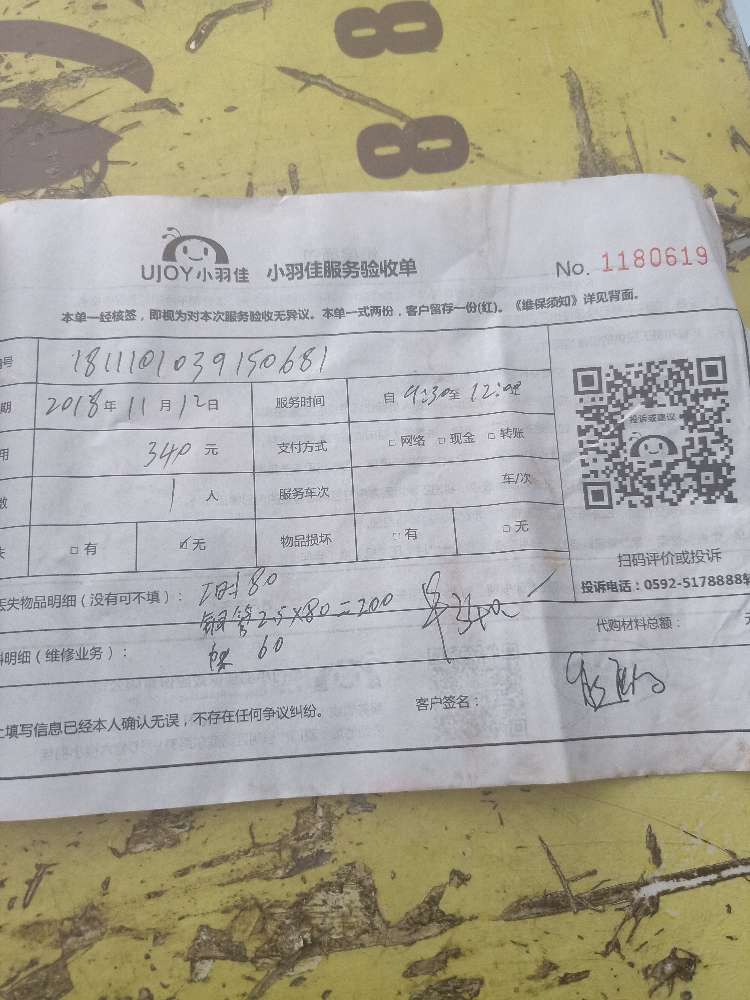 8
8
UJOY小羽佳 小羽佳服务验收单 No. 1180619
本单一经核签，即视为对本次服务验收无异议。本单一式两份，客户留存一份(红)。《维保须知》详见背面。
号 1811101039150681
期 2018年11月12日 服务时间 自 9:30至 12:00
用 340 元 支付方式 □网络 □现金 □转账
数 1 人 服务车次 车/次
失 □有 ☑无 物品损坏 □有 □无
投诉或建议
扫码评价或投诉
投诉电话：0592-5178888转
丢失物品明细（没有可不填）： 80
钢管2.5×80=200 340
代购材料总额： 元
料明细（维修业务）： 60
上填写信息已经本人确认无误，不存在任何争议纠纷。 客户签名：